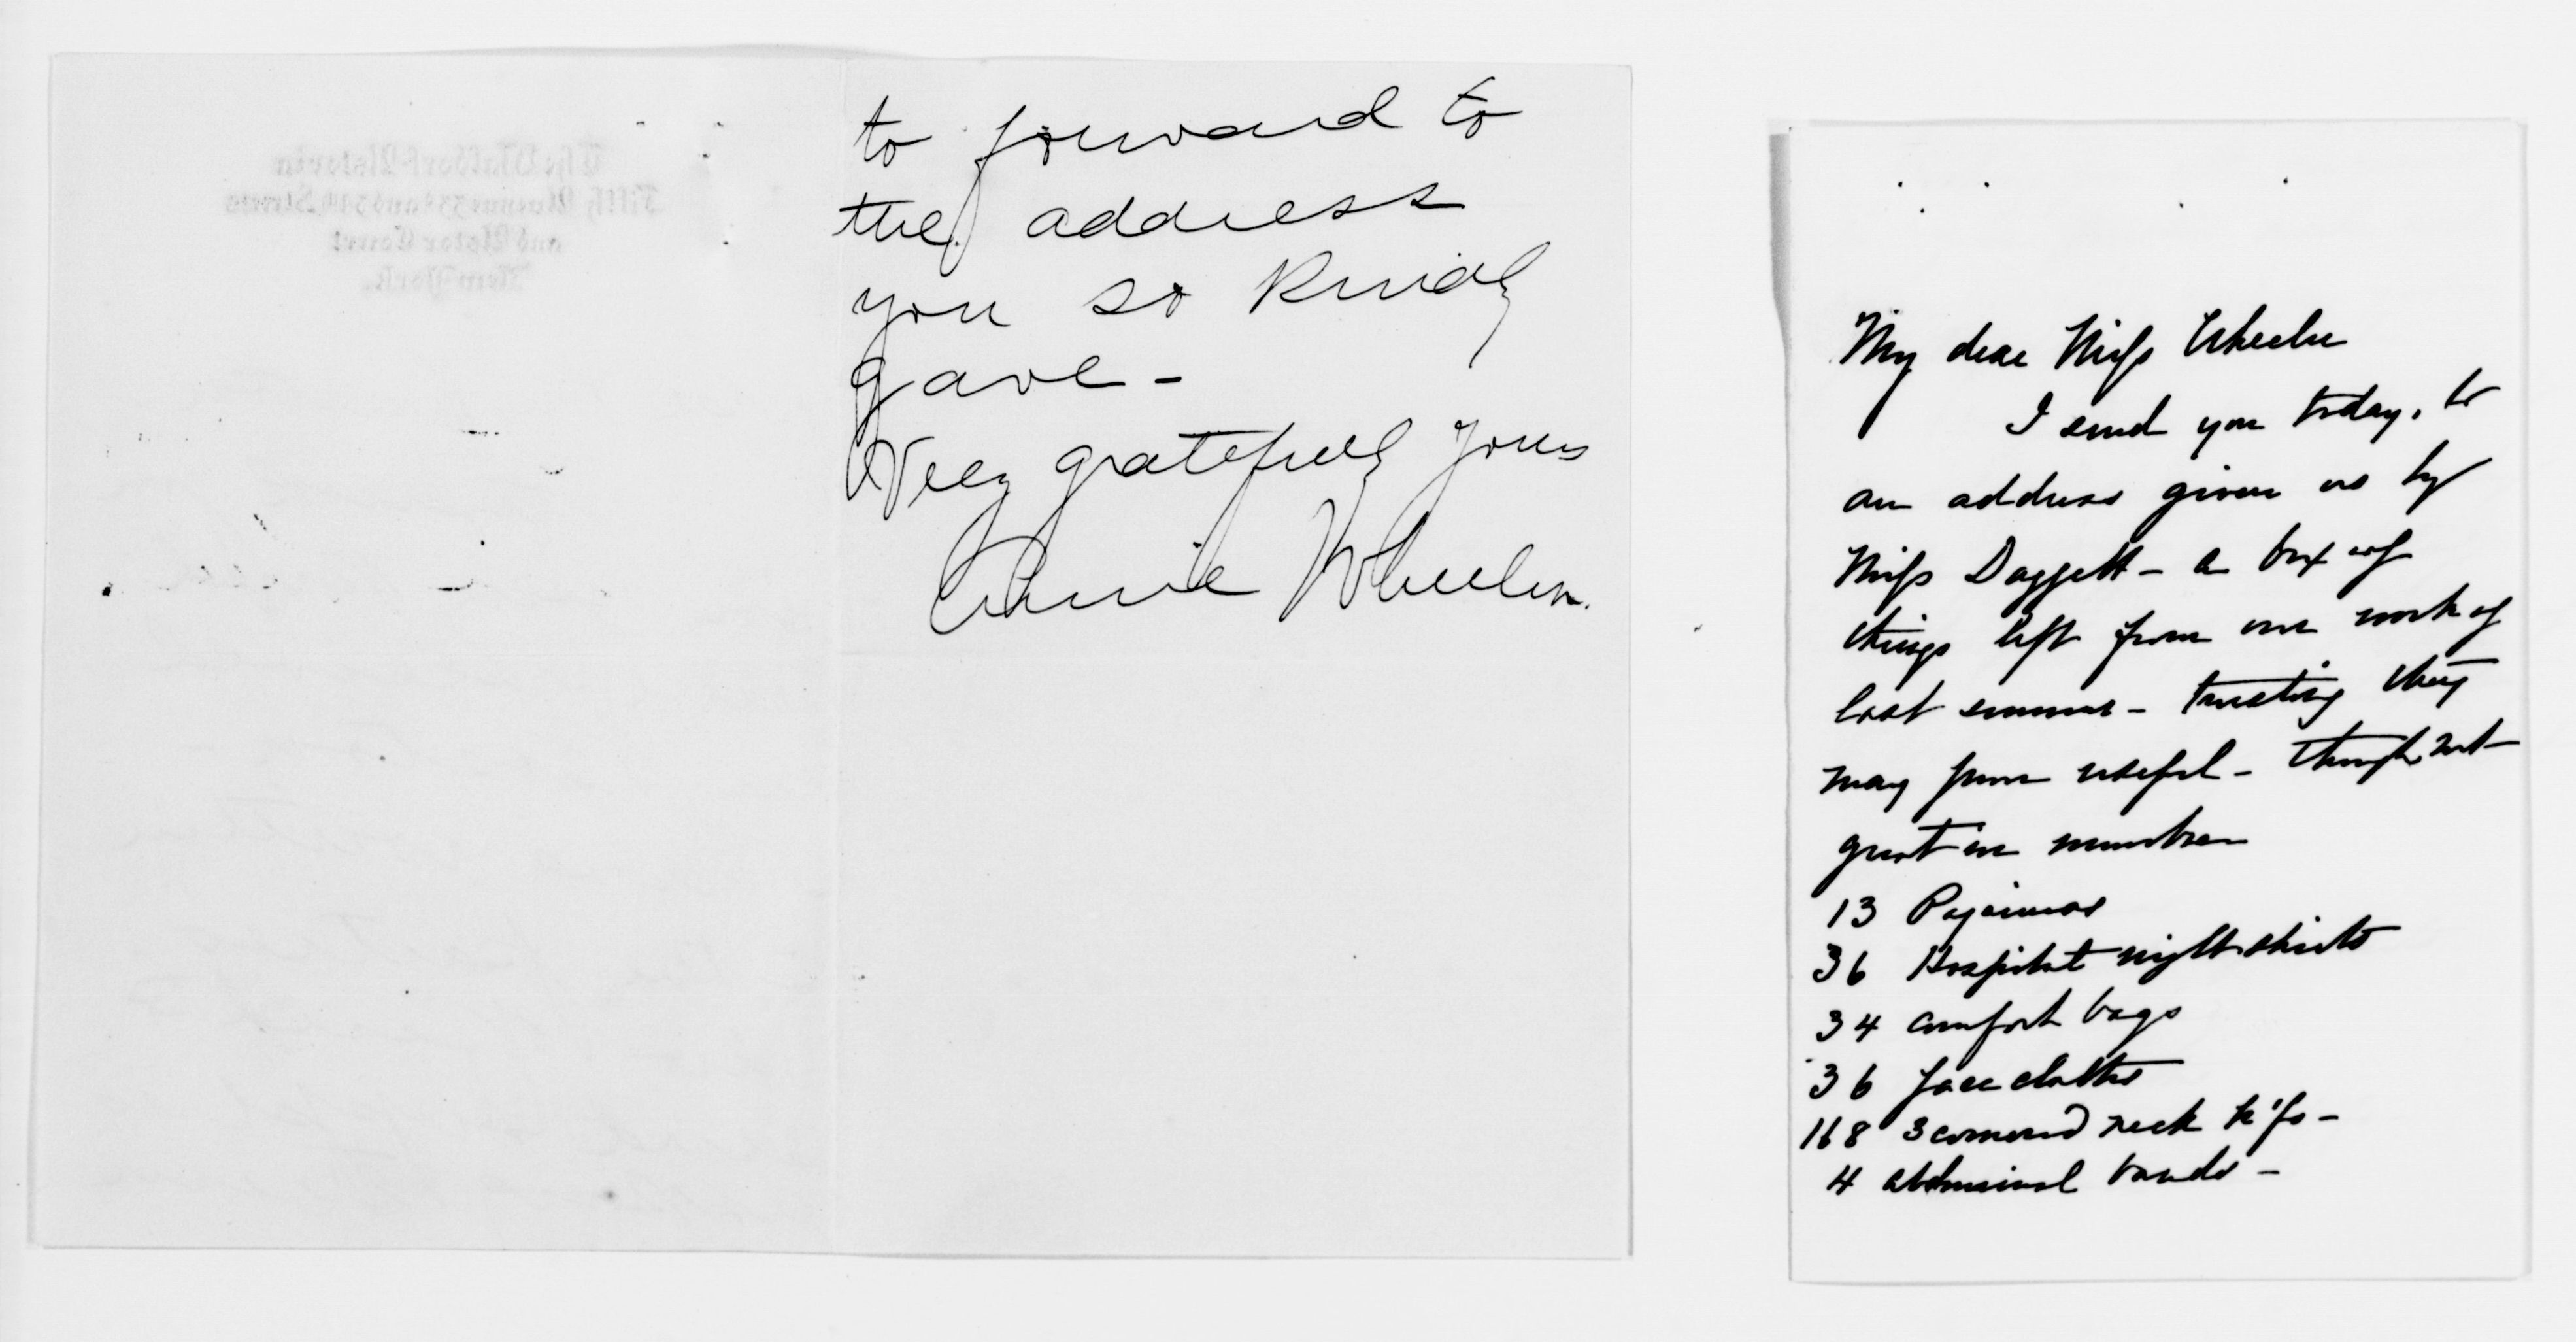 The Waldorf-Astoria
Fifth Avenue 33d and 34th Streets
and Astor Court
New-York.
to forward to
the address
you so kindly
gave -
Very gratefully yours
Annie Wheeler.
My dear Miss Wheeler
I send you today, to
an address given us by
Miss Daggett - a box of
things left from our work of
last summer - trusting they
may prove useful - though not
great in number
13 Pajamas
36 Hospital night shirts
34 comfort bags
36 face cloths
168 3 cornered neck h'k'fs -
4 abdominal bands -